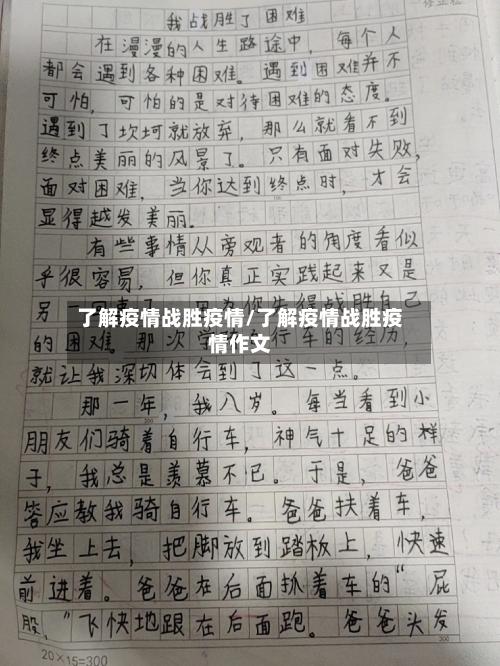 我战胜了困难
在漫漫的人生路途中，每个人
都会遇到各种困难。遇到困难并不
可怕，可怕的是对待困难的态度。
遇到了坎坷就放弃，那么就看不到
终点美丽的风景了。只有面对失败，
面对困难，当你达到终点时，才会
显得越发美丽。
有些事情从旁观者的角度看似
乎很容易，但你真正实践起来又是
另一回事了
自己
了解疫情战胜疫情/了解疫情战胜疫
情作文
的困难。那次学
行车的经历，
就让我深切体会到了这一点。
那一年，我八岁。每当看到小
朋友们骑着自行车，神气十足的样
子，我总是羡慕不已。于是，爸爸
答应教我骑自行车。爸爸扶着车，
我坐上去，把脚放到踏板上，快速
前进着。爸爸在后面抓着车的“屁
股，”飞快地跟在后面跑。爸爸头发
20×15=300
300